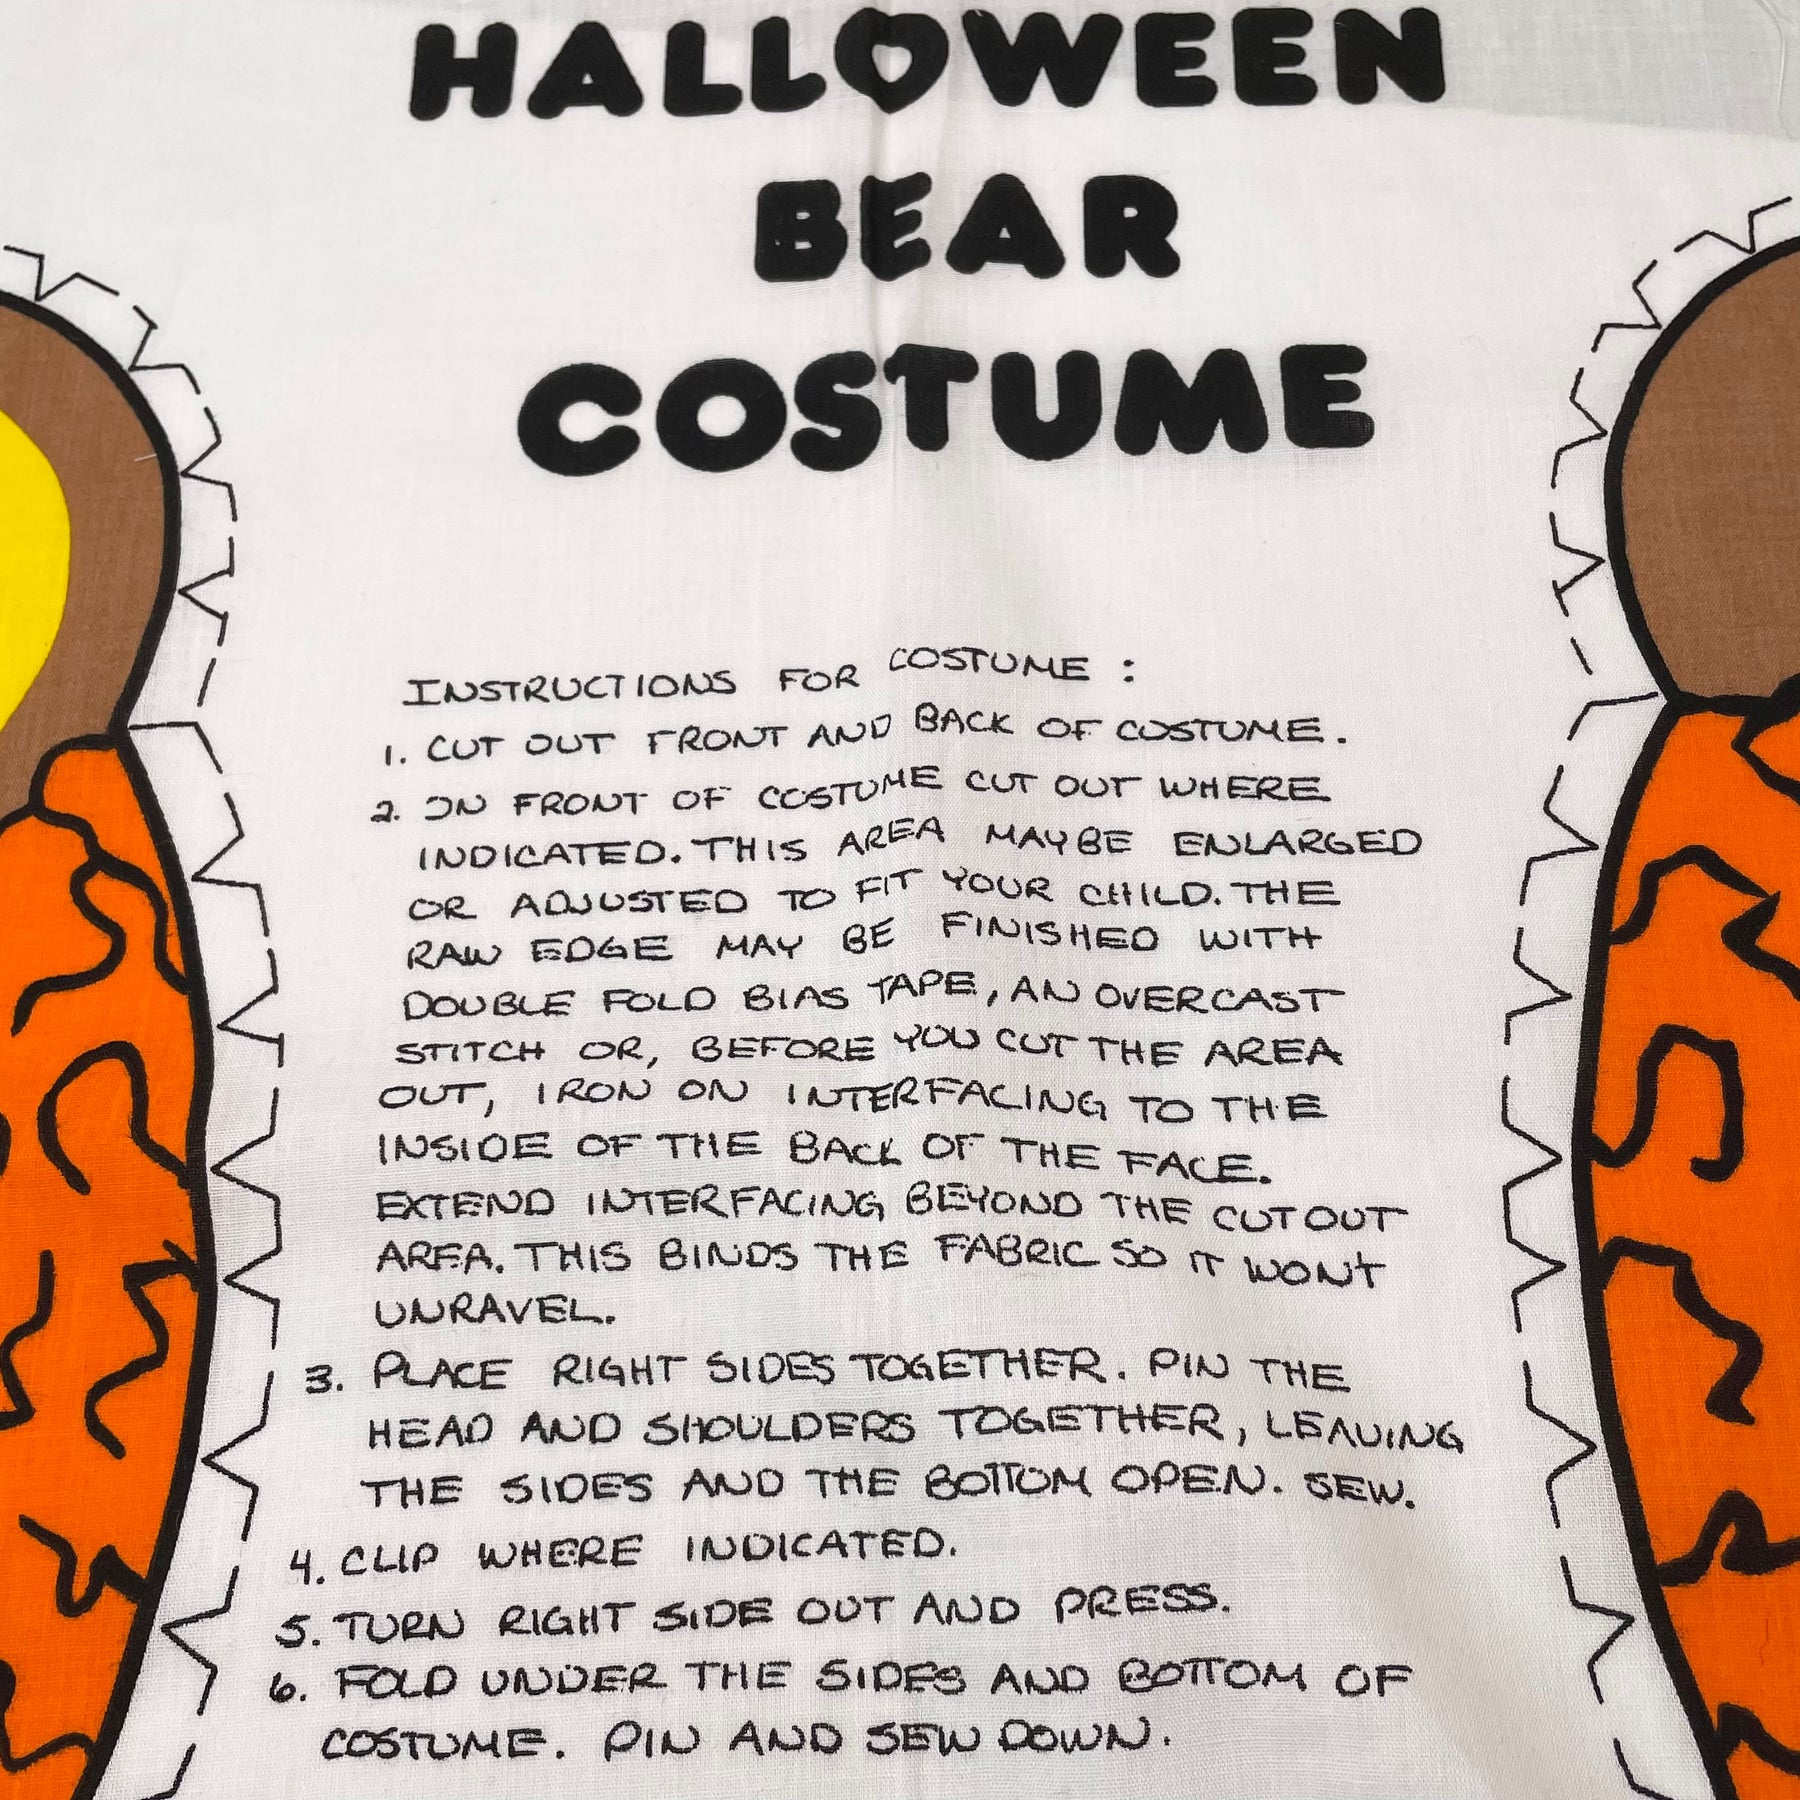 HALLOWEEN
BEAR
COSTUME
INSTRUCTIONS FOR COSTUME :
1. CUT OUT FRONT AND BACK OF COSTUME.
2. ON FRONT OF COSTUME CUT OUT WHERE
INDICATED. THIS AREA MAYBE ENLARGED
OR ADJUSTED TO FIT YOUR CHILD. THE
RAW EDGE MAY BE FINISHED WITH
DOUBLE FOLD BIAS TAPE, AN OVERCAST
STITCH OR, BEFORE YOU CUT THE AREA
OUT, IRON ON INTERFACING TO THE
INSIDE OF THE BACK OF THE FACE.
EXTEND INTERFACING BEYOND THE CUT OUT
AREA. THIS BINDS THE FABRIC SO IT WON'T
UNRAVEL.
3. PLACE RIGHT SIDES TOGETHER. PIN THE
HEAD AND SHOULDERS TOGETHER, LEAVING
THE SIDES AND THE BOTTOM OPEN. SEW.
4. CLIP WHERE INDICATED.
5. TURN RIGHT SIDE OUT AND PRESS.
6. FOLD UNDER THE SIDES AND BOTTOM OF
COSTUME. PIN AND SEW DOWN.